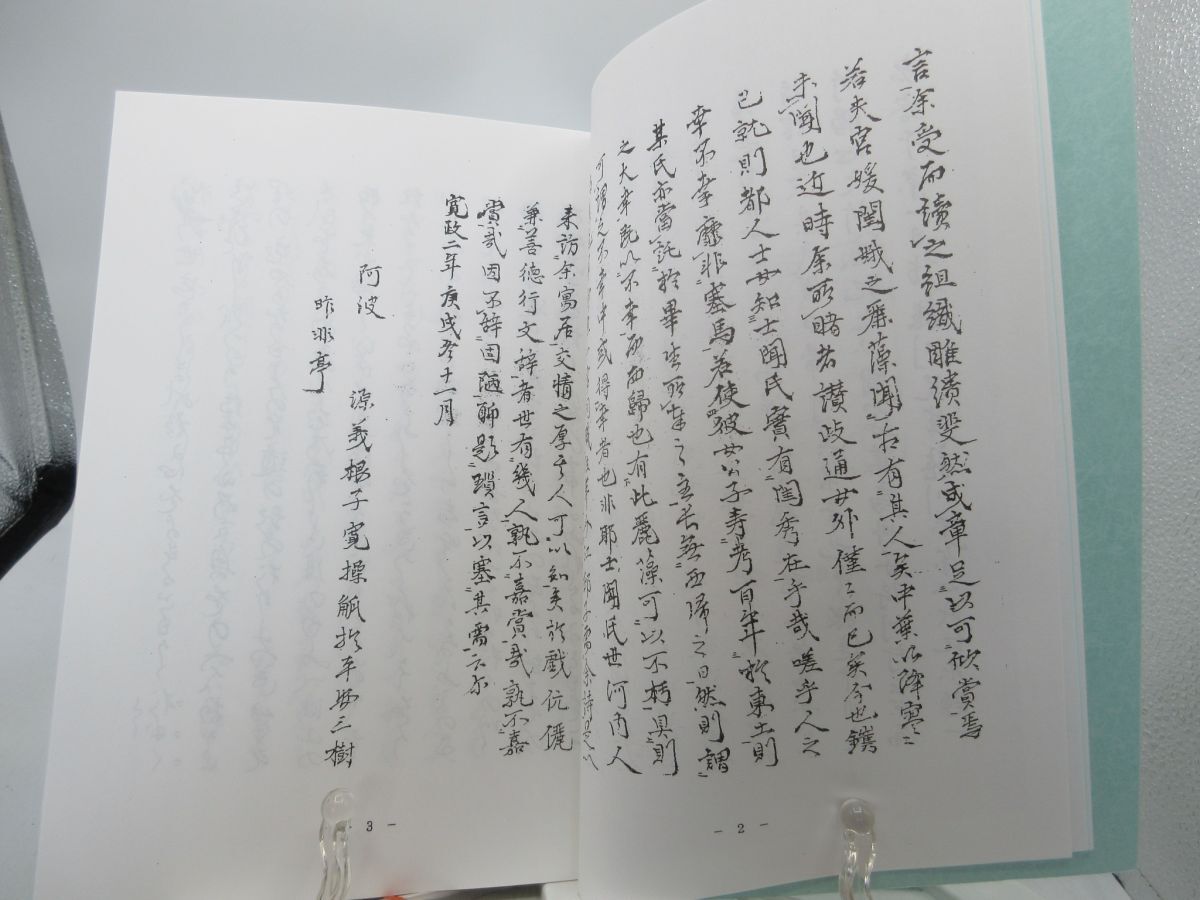 言余受而讀之組織雕繢斐然成章足以可欣賞焉
若夫宮媛閨娥之麗藻聞古有其人矣中葉以降寥〻
未聞也近時余所睹者讃岐通女外僅〻而已矣今也鐫
已就則都人士女知士聞氏實有閨秀在乎哉嗟乎人之
幸不幸靡非塞馬若使彼女公子壽考百年於東土則
某氏亦當託於畢生所事之主長無西歸之日然則謂
之大幸乾以不幸而西歸也有此麗藻可以不朽具則
可謂之不幸中或得幸者也非耶士聞氏世河內人
余詩
来訪余寓居交情之厚其人可以知矣於戲伉儷
兼善德行文辞者世有幾人孰不嘉賞哉孰不嘉
賞哉因不辞固陋聊題瑣言以塞其需云尔
寛政二年庚戌冬十一月
阿波 源義楊子寛操觚於平安三樹
昨非亭
- 2 -
3 -